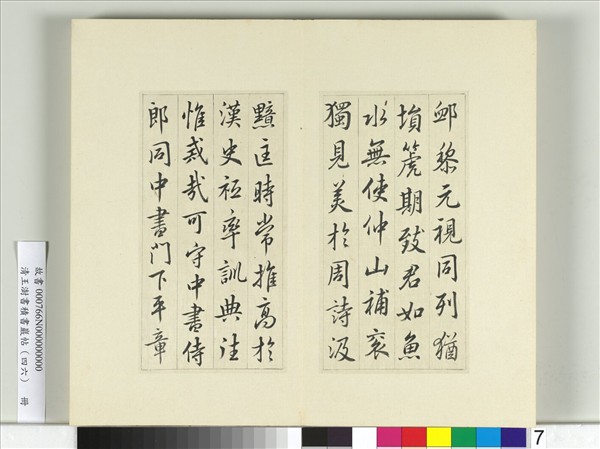 卹黎元視同列猶
塤篪期致君如魚
水無使仲山補袞
獨見美於周詩汲
黯匡時常推高於
漢史祗率訓典往
惟戒哉可守中書侍
郎同中書門下平章
故書000766N000000000
清王澍書積書巖帖(四六) 冊
7